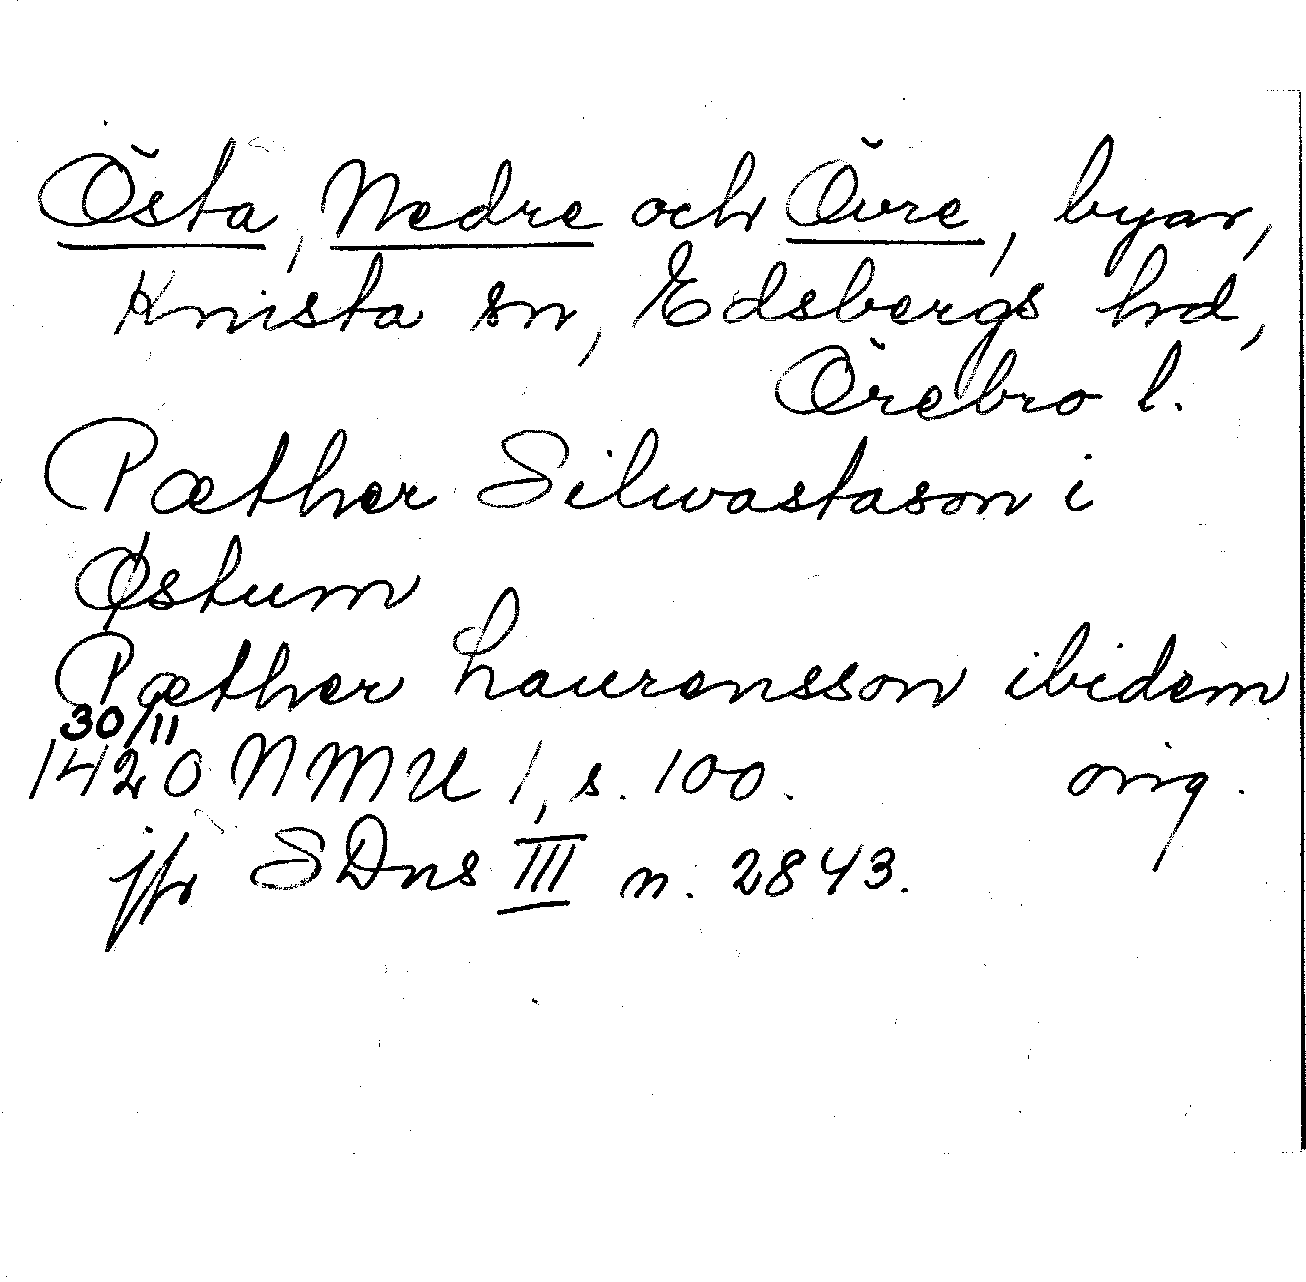 Östa, Nedre och Övre, byar,
Knista sn, Edsbergs hd,
Örebro l.
Pæther Silwastason i
Østum
Pæther Laurensson ibidem
30/11
1420 NMU 1, s. 100. orig.
jfr SDns III n. 2843.